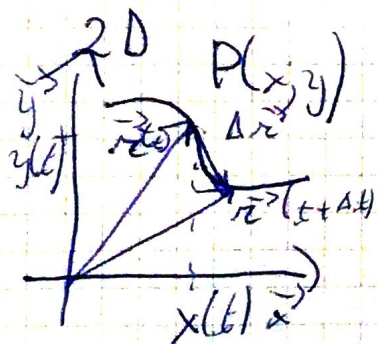 2D
P(x, y)
y⃗
y(t)
r⃗(t)
Δr⃗
r⃗(t+Δt)
x(t) x⃗